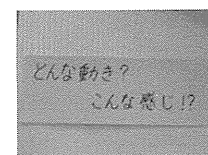 どんな動き?
こんな感じ!?